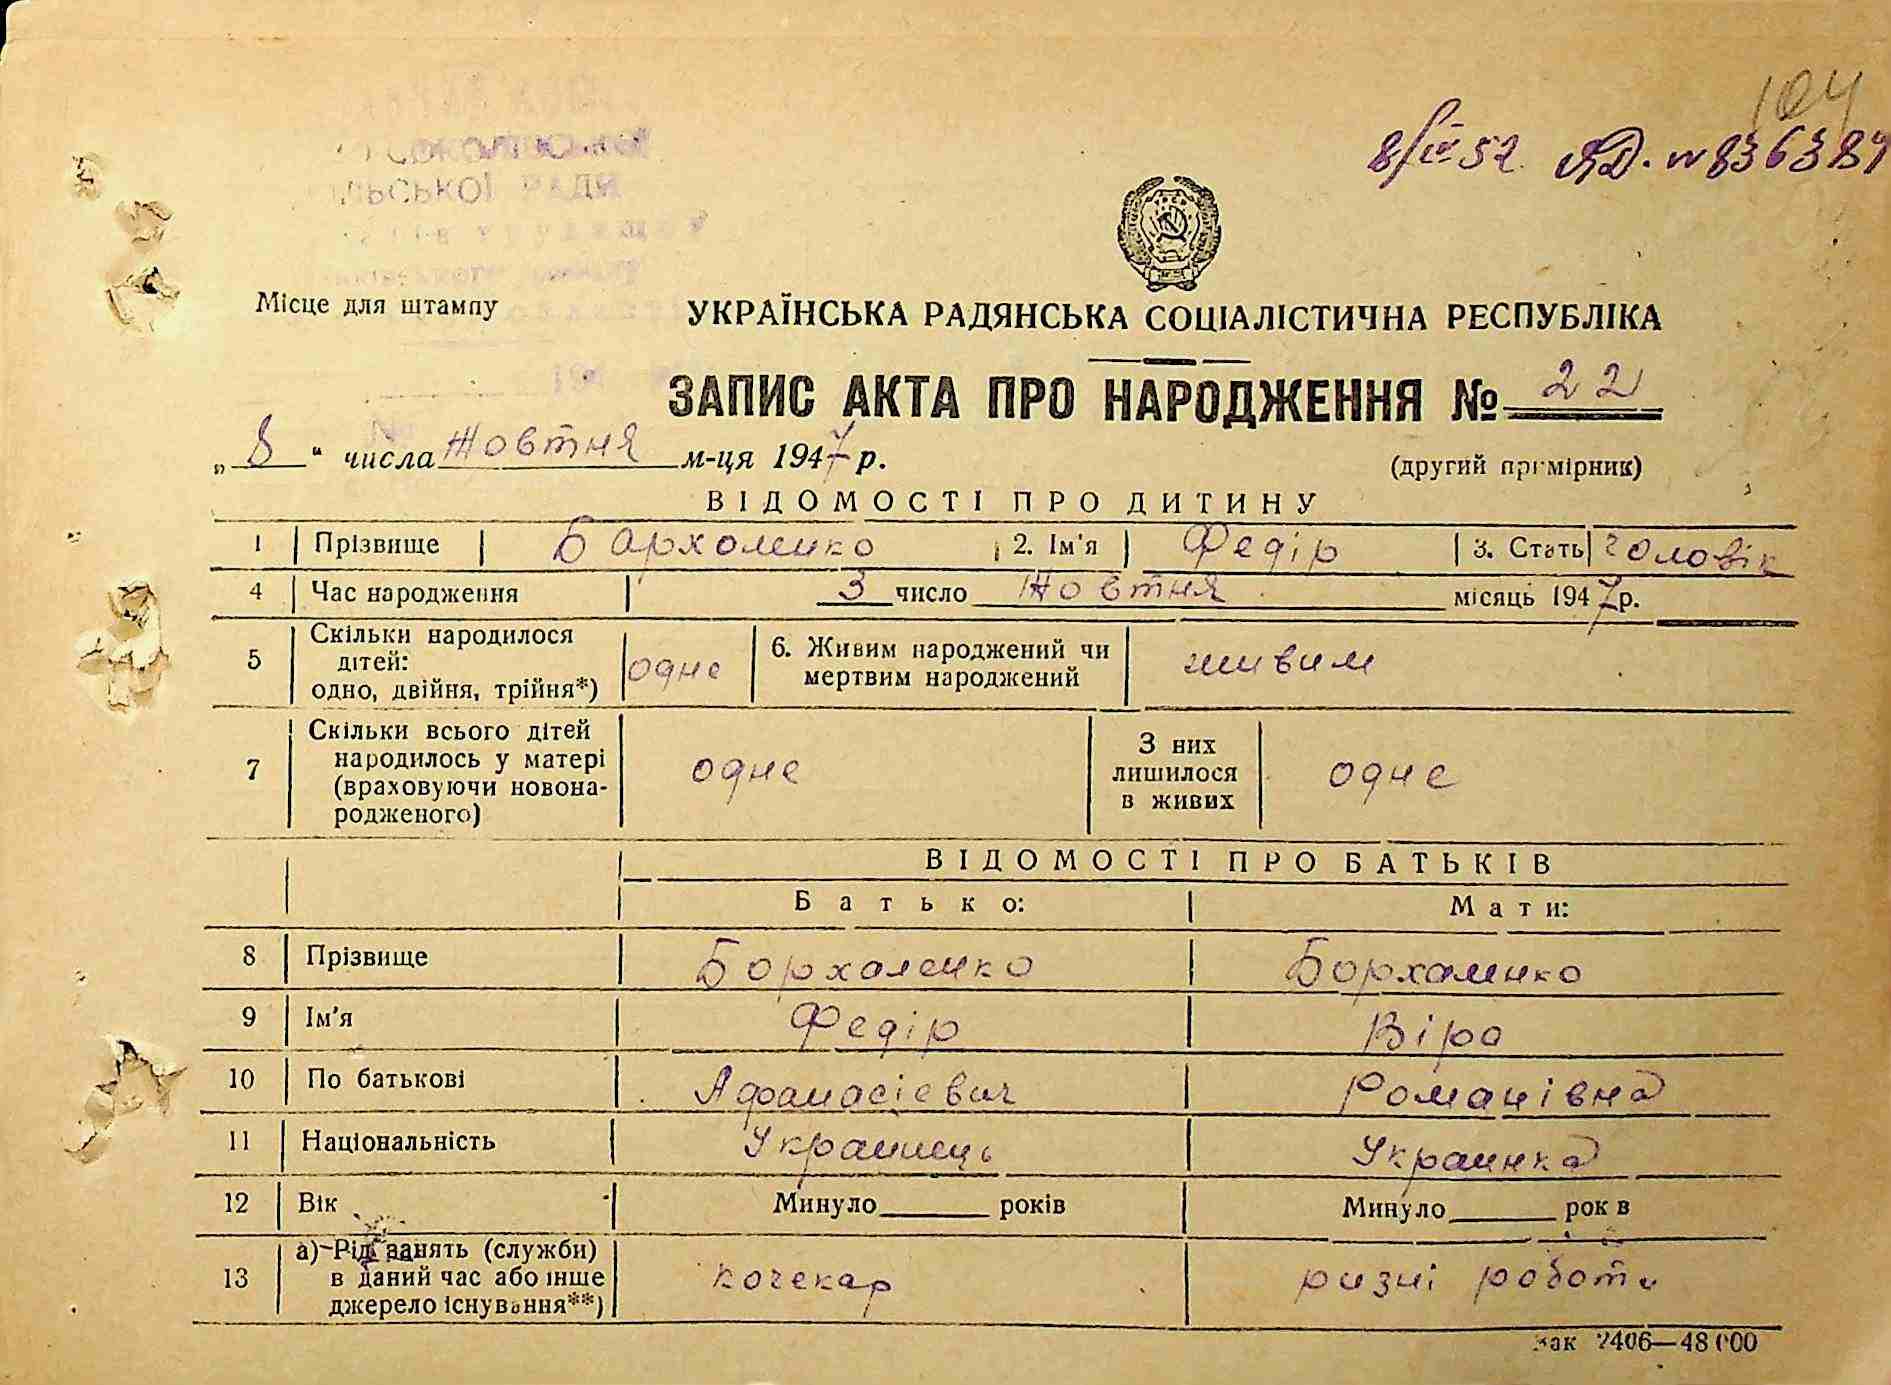 104
8/IV 52. ЯД. № 836384
ІЛЬСЬКОЇ РАДИ
Місце для штампу
УКРАЇНСЬКА РАДЯНСЬКА СОЦІАЛІСТИЧНА РЕСПУБЛІКА
ЗАПИС АКТА ПРО НАРОДЖЕННЯ № 22
„ 8 “ числа Жовтня м-ця 1947 р.
(другий примірник)
ВІДОМОСТІ ПРО ДИТИНУ
1 Прізвище Бархоленко 2. Ім'я Федір 3. Стать чоловік
4 Час народження 3 число Жовтня місяць 1947 р.
5 Скільки народилося дітей: одно, двійня, трійня*) одне 6. Живим народжений чи мертвим народжений живим
7 Скільки всього дітей народилось у матері (враховуючи новонародженого) одне З них лишилося в живих одне
ВІДОМОСТІ ПРО БАТЬКІВ
Батько: Мати:
8 Прізвище Борхаленко Борхаленко
9 Ім'я Федір Віра
10 По батькові Афанасієвич Романівна
11 Національність Украинець Украинка
12 Вік Минуло років Минуло рок в
13 а) Рід занять (служби) в даний час або інше джерело існування**) кочекар ризні роботи
Зак 2406—48000